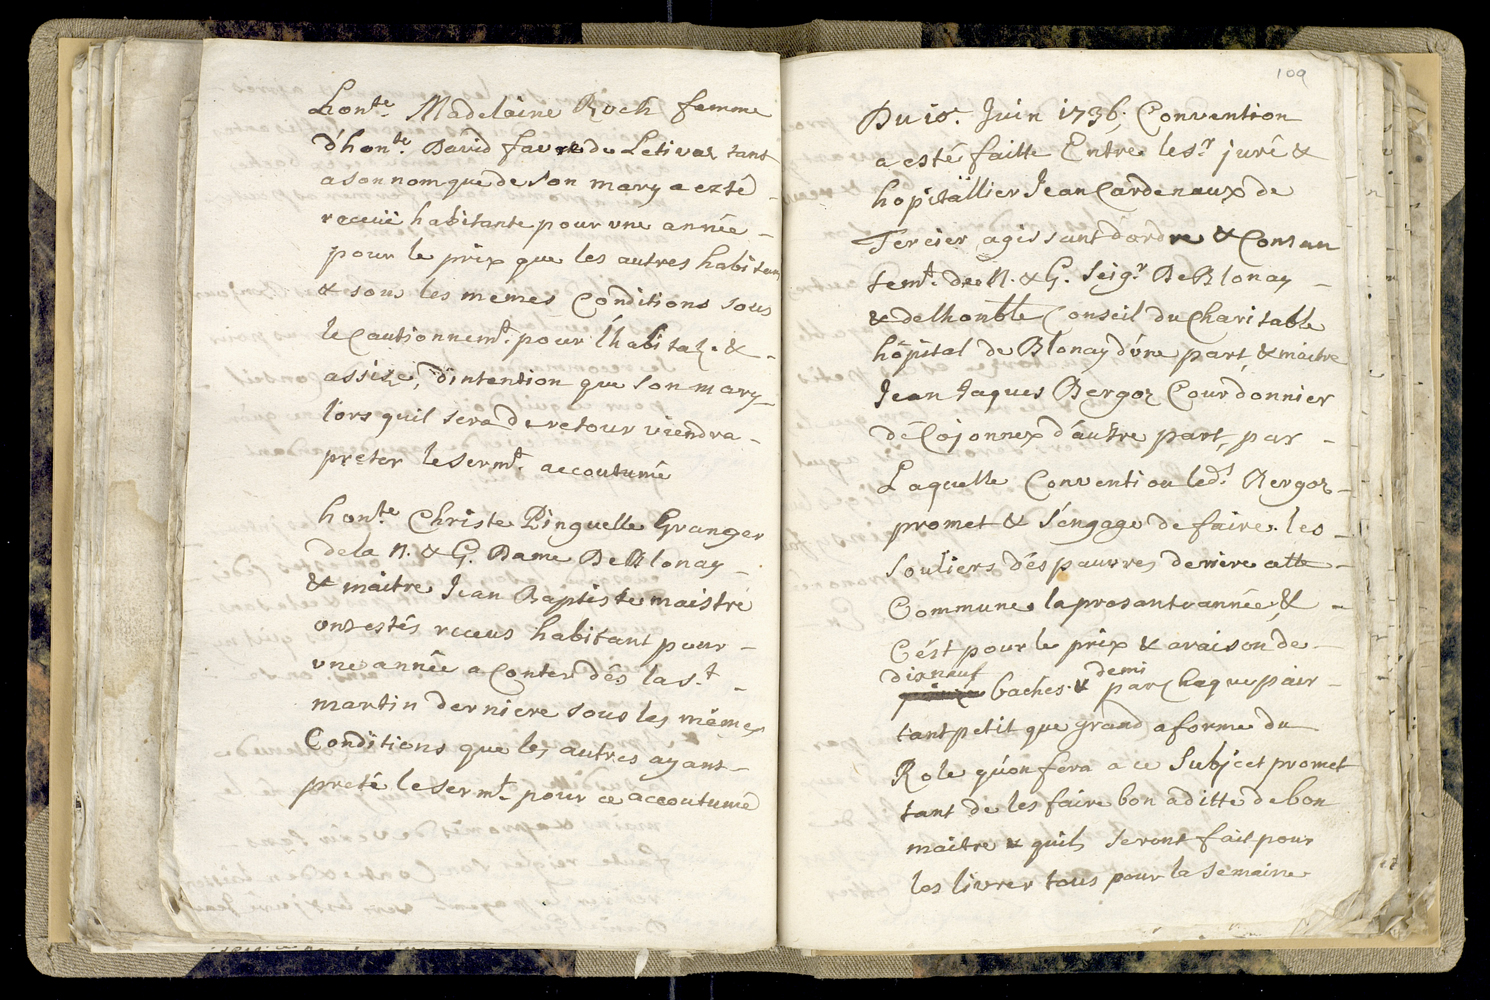 honte. Madelaine Roch femme
d'honte. David favre du Letivaz tant
a son nom que de son mary a ezté
receuë habitante pour vne année
pour le prix que les autres habitans
& sous les memes Conditions sous
le Cautionnemt. pour l'habitaz. &
assize, d'intention que son mary
lors quil sera de retour viendra
preter le sermt. accoutumé
honte. Christe Pinguelle Granger
de la N. & G. Dame De Blonay
& maitre Jean Baptiste maistre
ont estés receus habitant pour
vne année a Conter dês la St.
martin derniere sous les mêmes
Conditions que les autres ayant
preté le sermt. pour ce accoutumé
109
Du 10e. Juin 1736. Convention
a esté faitte Entre le sr. juré &
hopitallier Jean Cardenaux de
Tercier agissant d'ordre & Consan
temt. de N. & G. Seigr. De Blonay
& de lhonble Conseil du Charitable
hôpital de Blonay d'vne part, & maitre
Jean Jaques Bergoz Courdonnier
de Cojonnex d'autre part, par
Laquelle Convention ledt. Bergoz
promet & s'engage de faire les
souliers dés pauvres derriere cette
Commune la presante année, &
C'ést pour le prix & a raison de
dixneuf baches & demi par Chaque pair
tant petit que grand a forme du
Role qu'on fera a ce Subjcet promet
tant de les faire bon a ditte de bon
maitre & quils seront fait pour
les livrer tous pour la semaine